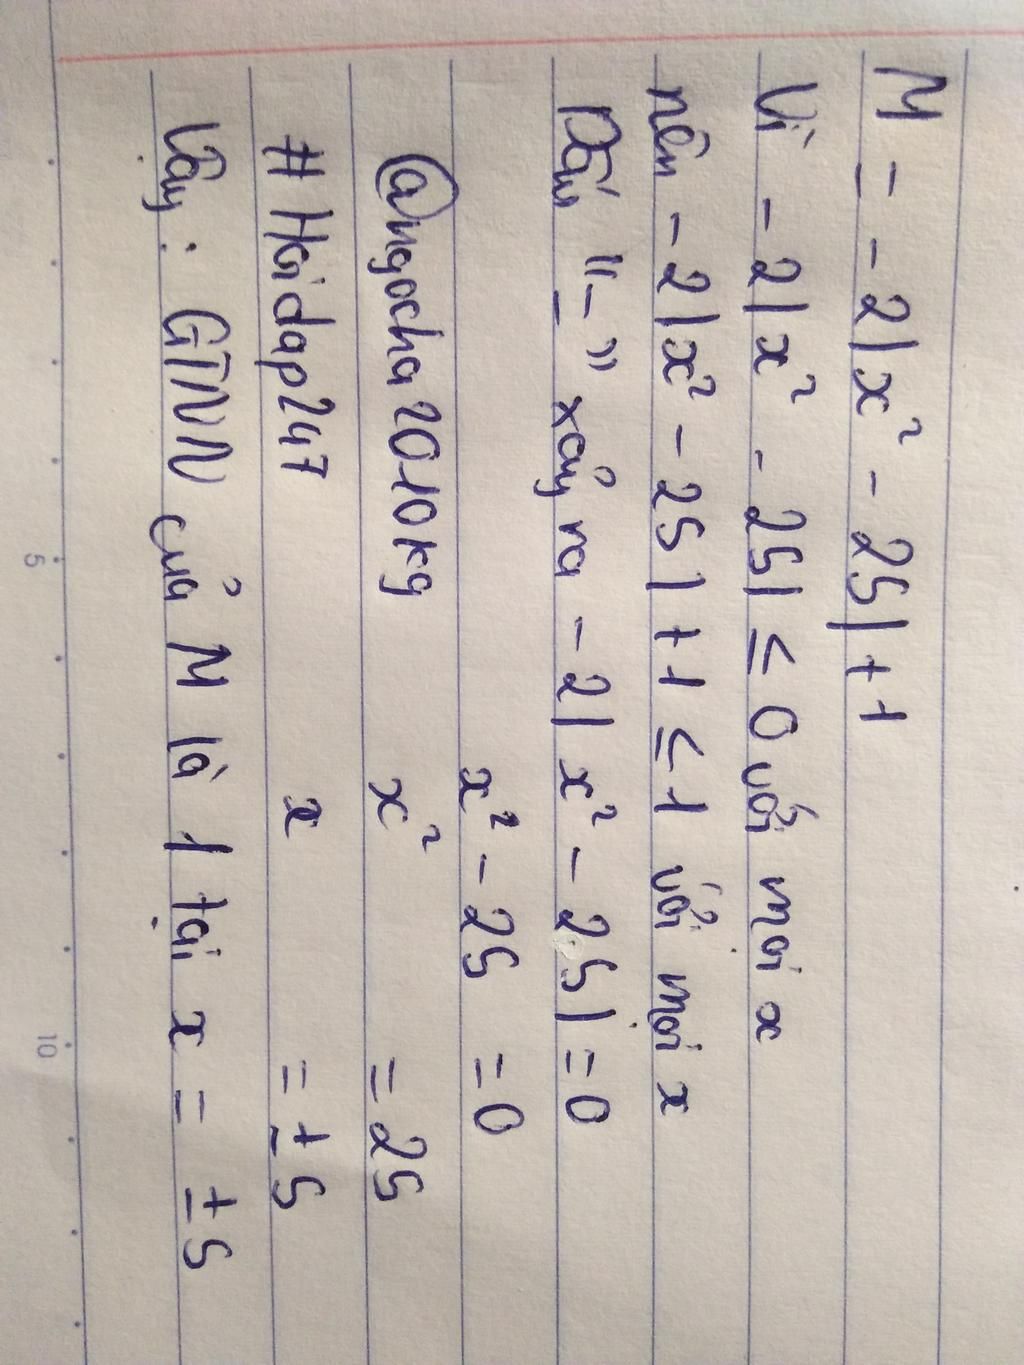 M = - 2|x² - 25| + 1
Vì - 2|x² - 25| ≤ 0 với mọi x
nên - 2|x² - 25| + 1 ≤ 1 với mọi x
Dấu "=" xảy ra - 2|x² - 25| = 0
x² - 25 = 0
@ngocha2010kg x² = 25
#Hoidap247 x = ± 5
Vậy: GTNN của M là 1 tại x = ± 5
5
10